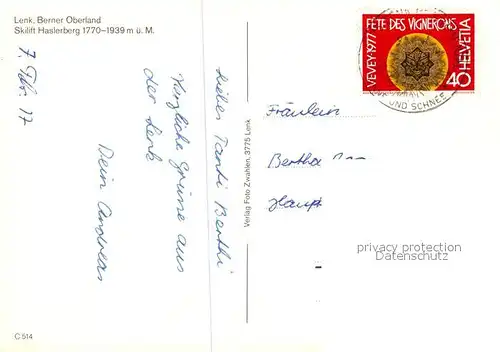 Lenk, Berner Oberland
Skilift Haslerberg 1770–1939 m ü. M.
7. Febr. 77
Liebes Tanti Berthi
Herzliche Grüsse aus
der Lenk
Dein Andreas
C 514
Verlag Foto Zwahlen, 3775 Lenk
FÊTE DES VIGNERONS
VEVEY-1977
HELVETIA
40
UND SCHNEE
Fräulein
Bertha
Haupt
privacy protection
Datenschutz